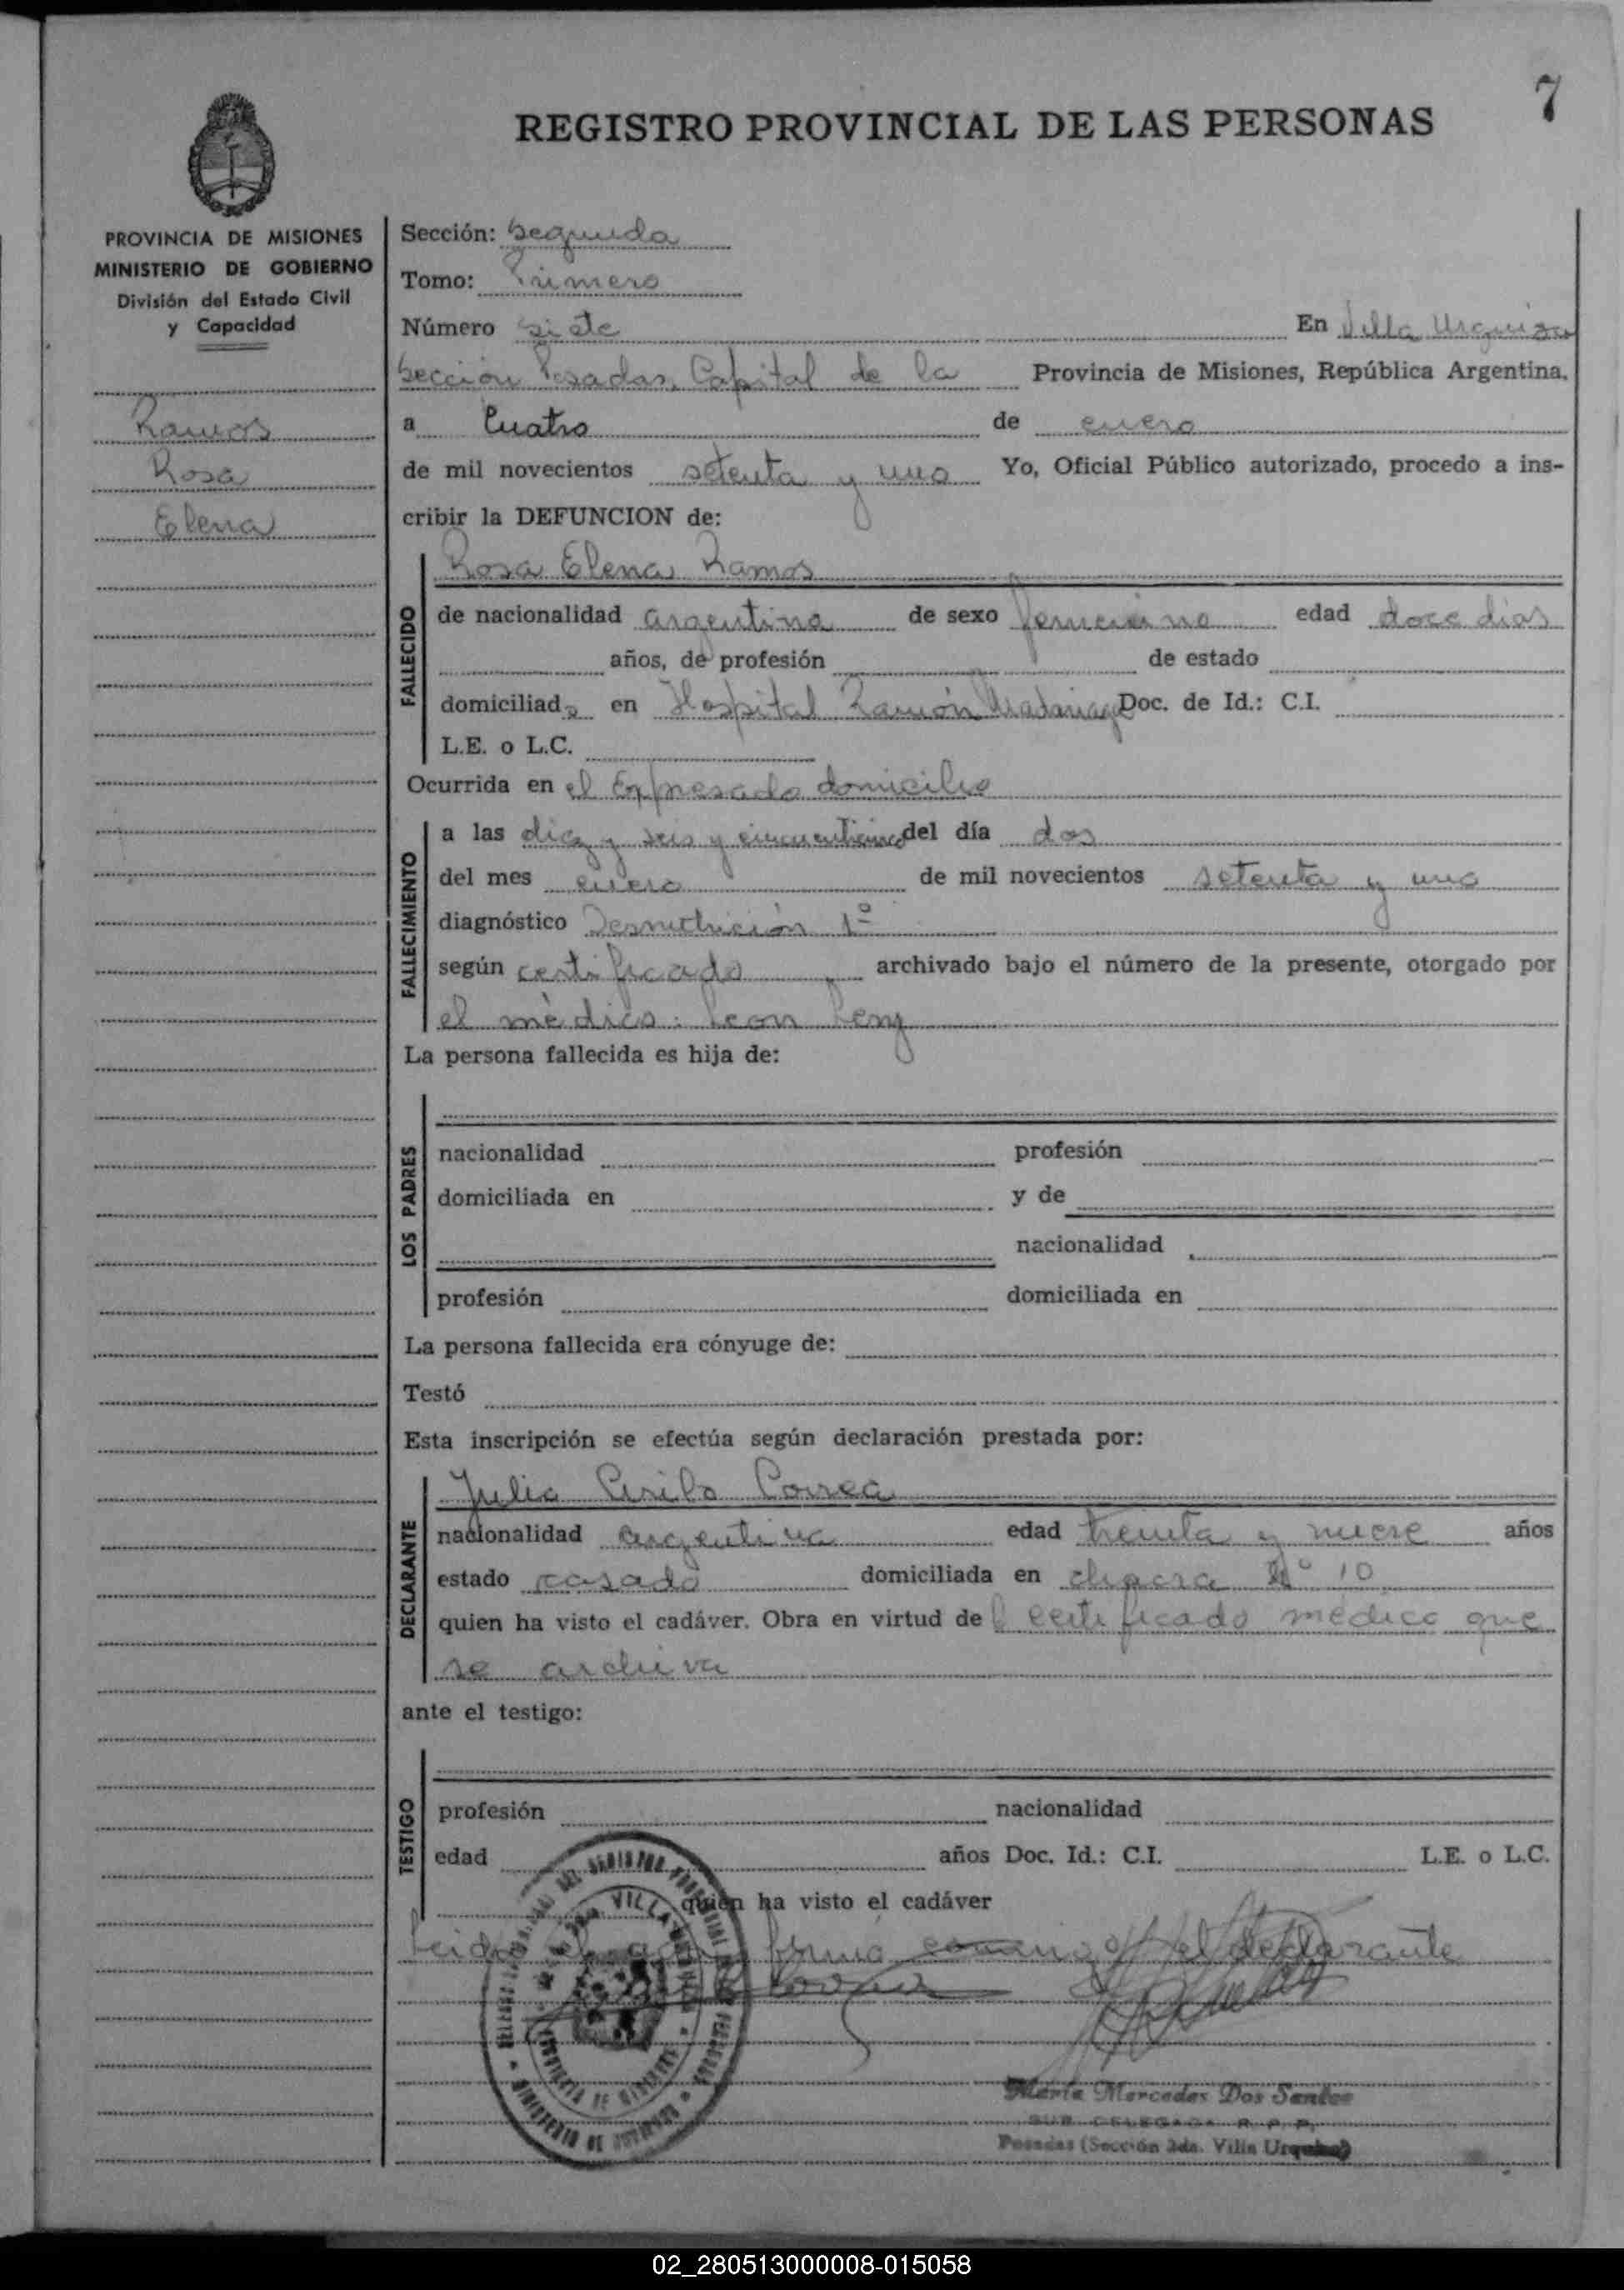 7
REGISTRO PROVINCIAL DE LAS PERSONAS
PROVINCIA DE MISIONES
MINISTERIO DE GOBIERNO
División del Estado Civil
y Capacidad
Ramos
Rosa
Elena
Sección: Segunda
Tomo: Primero
Número siete En Villa Urquiza
Sección Posadas, Capital de la Provincia de Misiones, República Argentina,
a Cuatro de enero
de mil novecientos setenta y uno Yo, Oficial Público autorizado, procedo a ins-
cribir la DEFUNCION de:
Rosa Elena Ramos
FALLECIDO
de nacionalidad argentina de sexo femenino edad doce dias
años, de profesión de estado
domiciliada en Hospital Ramón Madariaga Doc. de Id.: C.I.
L.E. o L.C.
Ocurrida en el Expresado domicilio
FALLECIMIENTO
a las diez y seis y del día dos
del mes enero de mil novecientos setenta y uno
diagnóstico Desnutrición 1º
según certificado archivado bajo el número de la presente, otorgado por
el médico: Leon
La persona fallecida es hija de:
LOS PADRES
nacionalidad profesión
domiciliada en y de
nacionalidad
profesión domiciliada en
La persona fallecida era cónyuge de:
Testó
Esta inscripción se efectúa según declaración prestada por:
Julio Cirilo Correa
DECLARANTE
nacionalidad argentina edad treinta y nueve años
estado casado domiciliada en chacra Nº 10
quien ha visto el cadáver. Obra en virtud del certificado médico que
se archiva
ante el testigo:
TESTIGO
profesión nacionalidad
edad años Doc. Id.: C.I. L.E. o L.C.
quien ha visto el cadáver
Leida el firma conmigo el declarante
María Mercedes Dos Santos
SUB DELEGADA R. P. P.
Posadas (Sección 2da. Villa Urquiza)
02_280513000008-015058